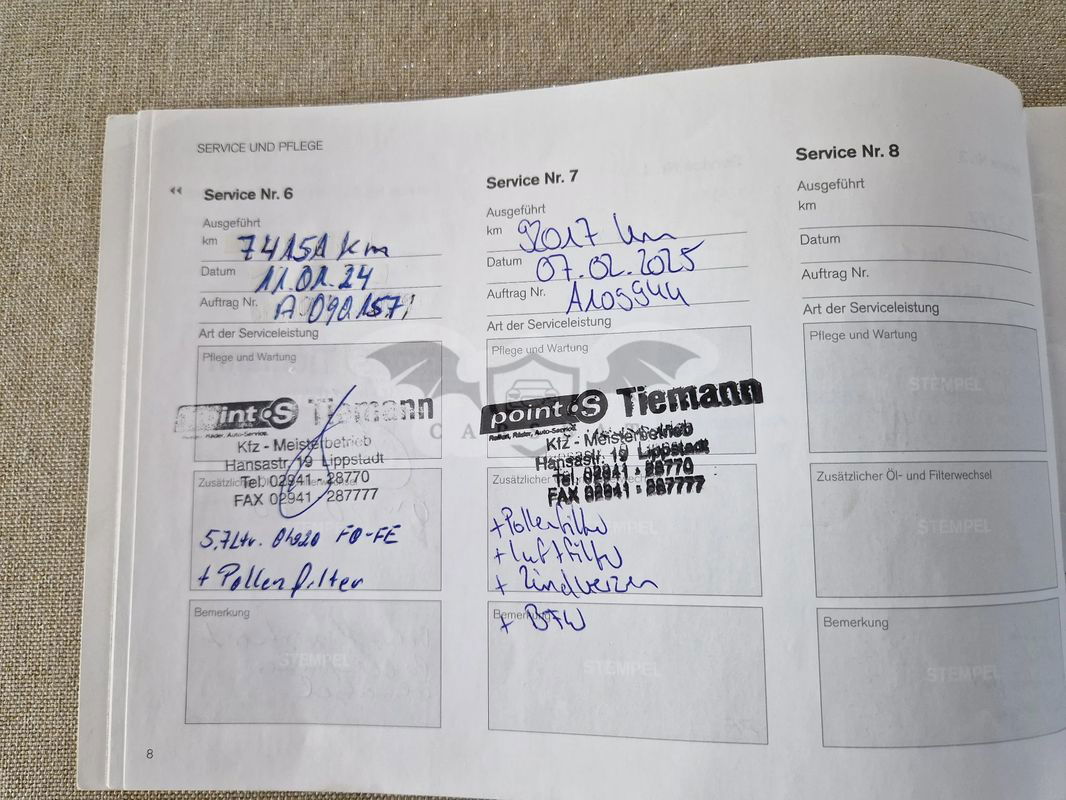 SERVICE UND PFLEGE
Service Nr. 6
Ausgeführt
km 74151 km
Datum 11.01.24
Auftrag Nr. A 090157
Art der Serviceleistung
Pflege und Wartung
point S Tiemann
Reifen, Räder, Auto-Service
Kfz - Meisterbetrieb
Hansastr. 19 Lippstadt
Tel. 02941 - 28770
Zusätzlicher Öl- und Filterwechsel
FAX 02941 - 287777
STEMPEL
5,7 Ltr. 0W20 FO-FE
+ Pollenfilter
Bemerkung
STEMPEL
Service Nr. 7
Ausgeführt
km 92017 km
Datum 07.02.2025
Auftrag Nr. A109944
Art der Serviceleistung
Pflege und Wartung
point S Tiemann
Reifen, Räder, Auto-Service
Kfz - Meisterbetrieb
Hansastr. 19 Lippstadt
Tel. 02941 - 28770
Zusätzlicher
FAX 02941 - 287777
+ Pollenfilter
STEMPEL
+ Luftfilter
+ Zündkerzen
Bemerkung
+ BFW
STEMPEL
Service Nr. 8
Ausgeführt
km
Datum
Auftrag Nr.
Art der Serviceleistung
Pflege und Wartung
STEMPEL
Zusätzlicher Öl- und Filterwechsel
STEMPEL
Bemerkung
STEMPEL
8